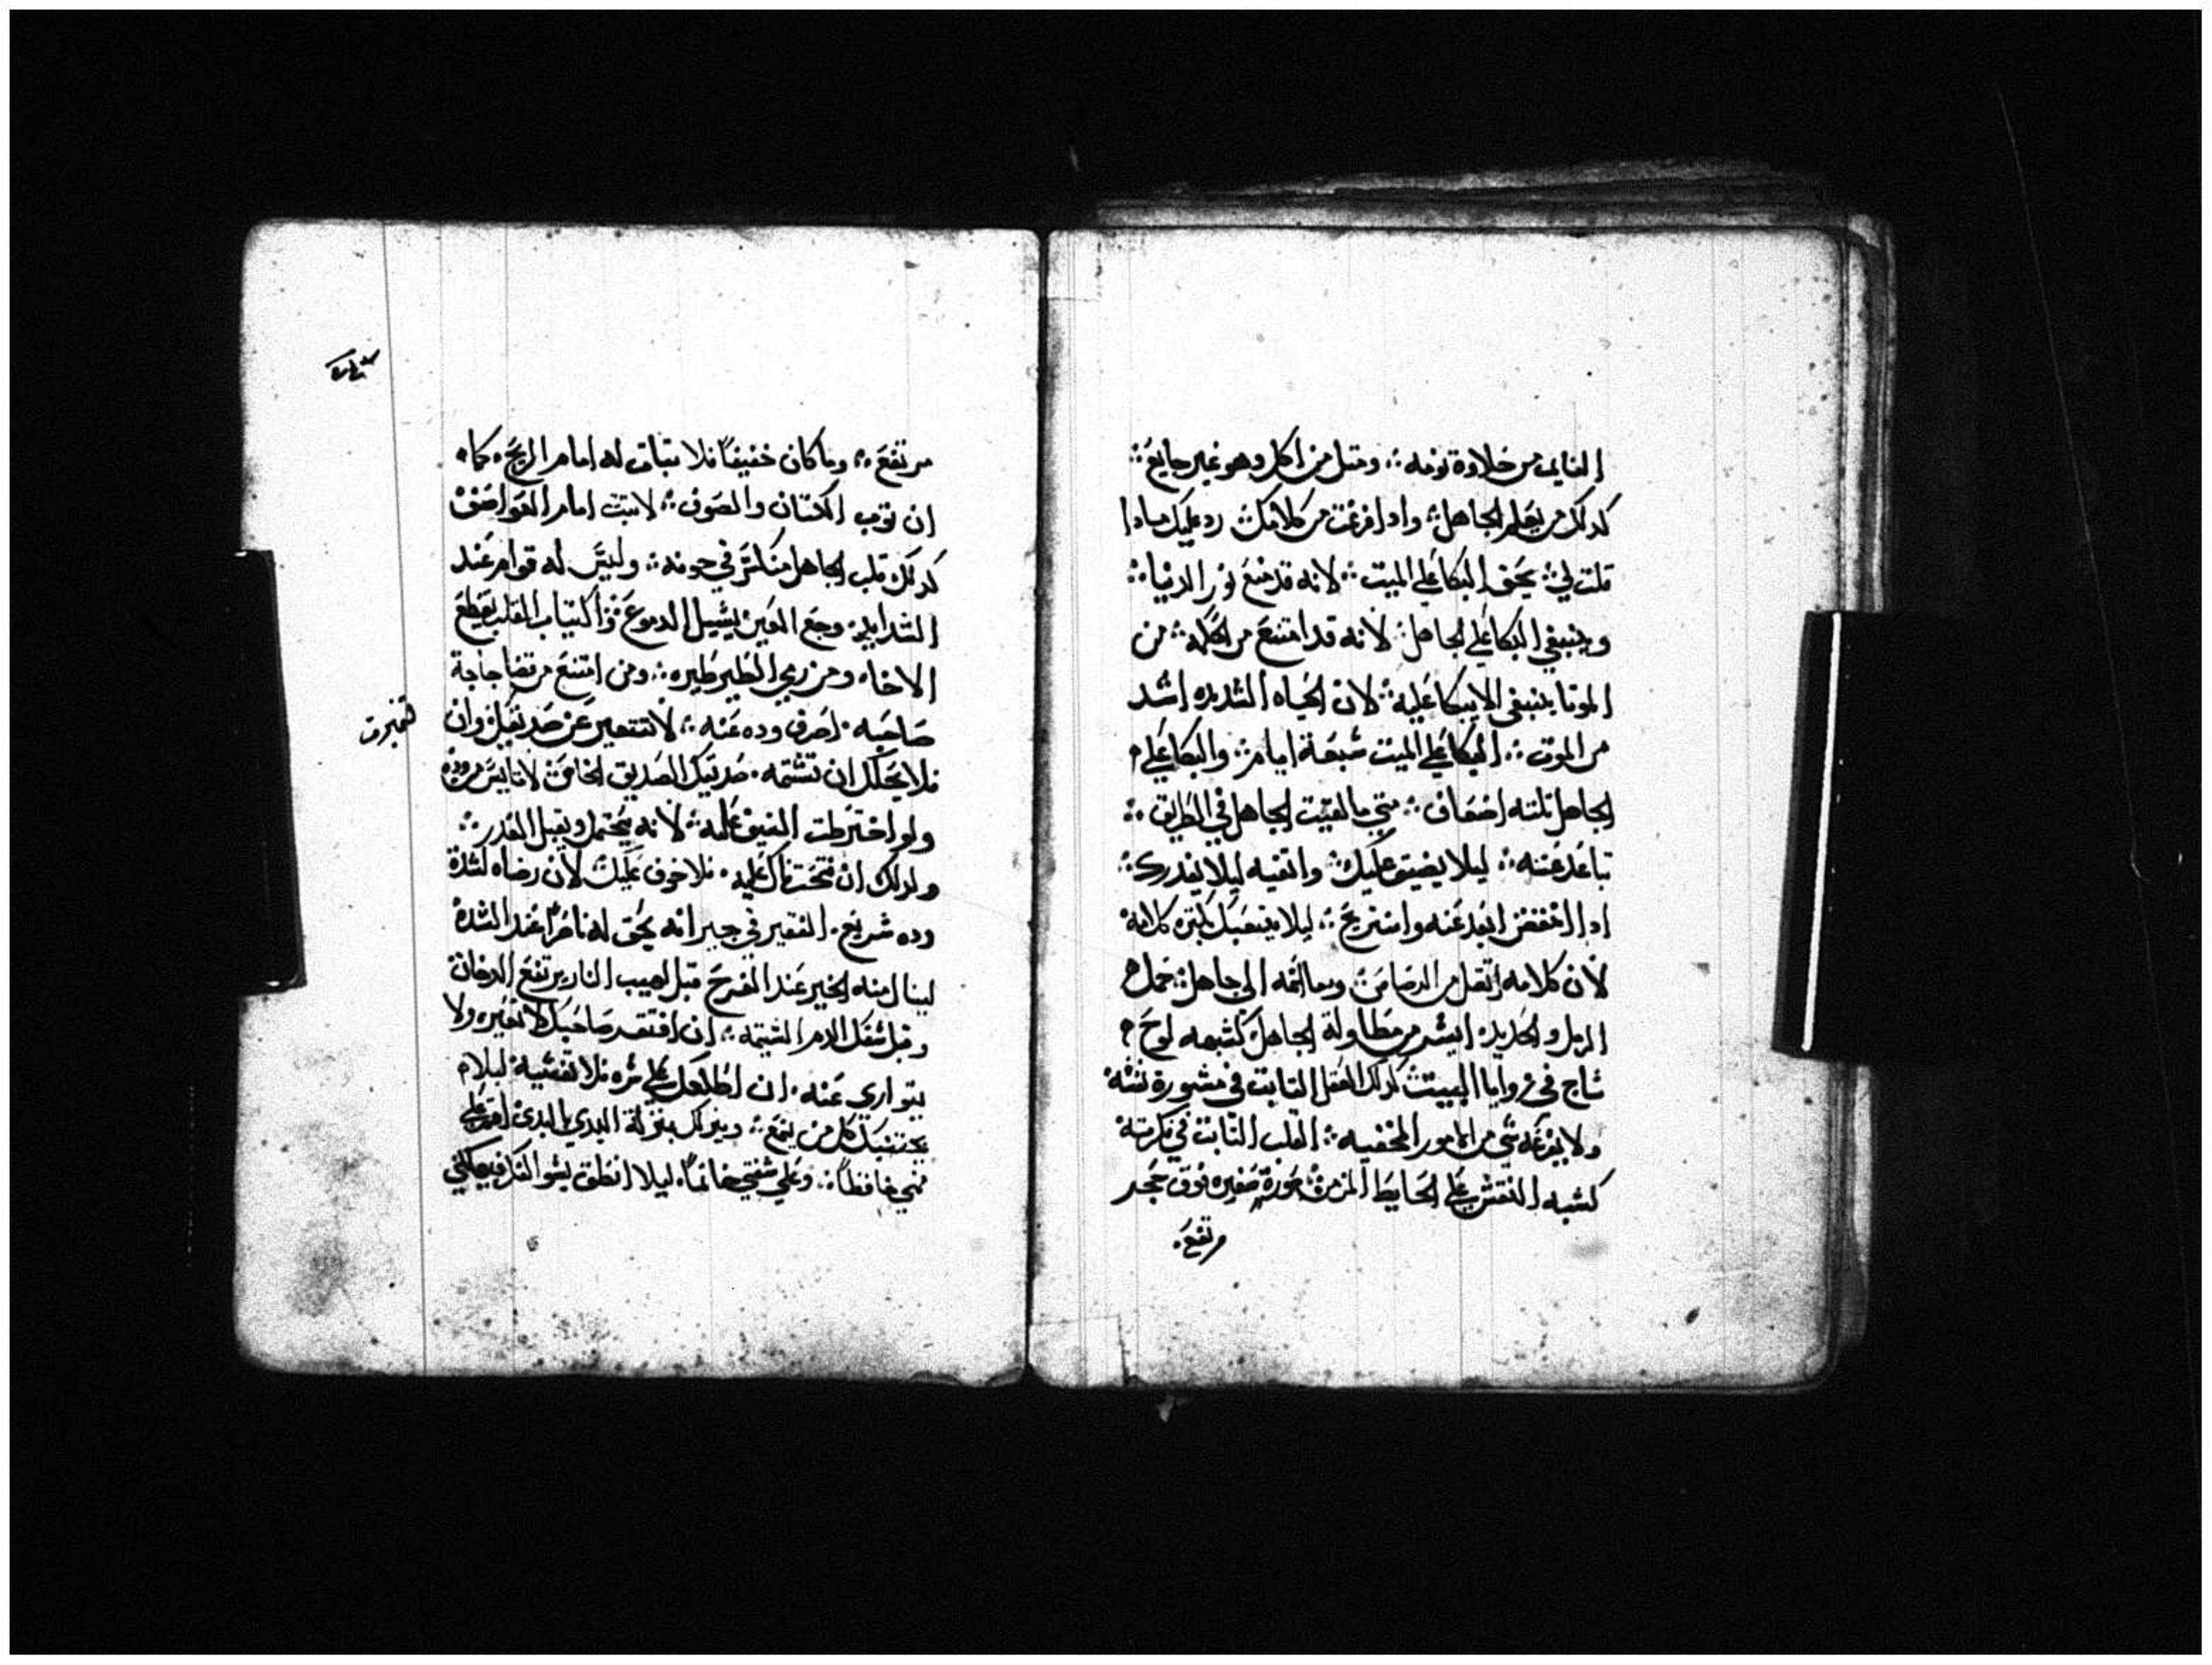 النايم من حلاوة نومه ؞ ومتل من اكل وهو غير جايع ؞
كدلك من يعلم الجاهل ؞ وادا فرغت من كلامك رد عليك مادا
قلت لي ؞ يحق البكا على الميت ؞ لانه قد منع نور الدنيا ؞
وينبغي البكا على الجاهل ؞ لانه قد امتنع من الحكمه ؞ من
الموتا ينبغي الا يبكا عليه ؞ لان الحياه الشديده اشد
من الموت ؞ البكا على الميت سبعة ايام ؞ والبكا على
الجاهل تلته اضعاف ؞ متي ما لقيت الجاهل في الطريق ؞
تباعد عنه ؞ ليلا يضيق عليك ؞ واتقيه ليلا يغدرك ؞
ادا انتفض ابعد عنه واستريح ؞ ليلا يتعبك بكترة كلامه
لان كلامه اتقل من الرصاص ؞ الي جاهل ؞ حمل
الرمل والحديد ايسر من مطاولة الجاهل كشبه لوح
ساج في زوايا البيت كدلك العقل التابت في مشورة نفسه
ولا يفزعه شي من الامور المخفيه ؞ القلب التابت في فكرته
كشبه النقش على الحايط المزين صورة صغيره فوق حجر
مرتفع
مرتفع ؞ وما كان خفيفا فلا تبات له امام الريح ؞ كما
ان توب الكتان والصوف ؞ لا يتبت امام العواصف
كدلك قلب الجاهل في جوفه ؞ وليس له قوام عند
الشدايد ؞ وجع العين يسيل الدموع ؞ واكتياب القلب يقطع
الاخاه ومن رمي الطير طيره ؞ ومن امتنع من قضا حاجة
صاحبه ؞ صرف وده عنه ؞ لا تتغير عن صديقك وان
فلا يحل لك ان تشتمه ؞ صديقك الصديق الخاص لا تايس من وده
ولو اخترطت السيف عليه ؞ لانه يحتمل ويقبل العدر ؞
وكدلك ان فتحت فاك عليه ؞ فلا خوف عليك لان رضاه لشدة
وده سريع ؞ الفقير في جيرانه يحق له ناصرا عند الشدة
لينال منه الخير عند الفرح قبل لهيب النار يرتفع الدخان
وقبل سفك الدم الشتيمه ؞ ان افتقر صاحبك لا تعيره ولا
تتواري عنه ؞ ان اطلعك على سره فلا تفشيه ليلا
يجتنبك كل من يسمع ؞ وينزلك بمنزلة البدي
فمي حافظا ؞ وعلى شفتي خاتما ليلا انطق